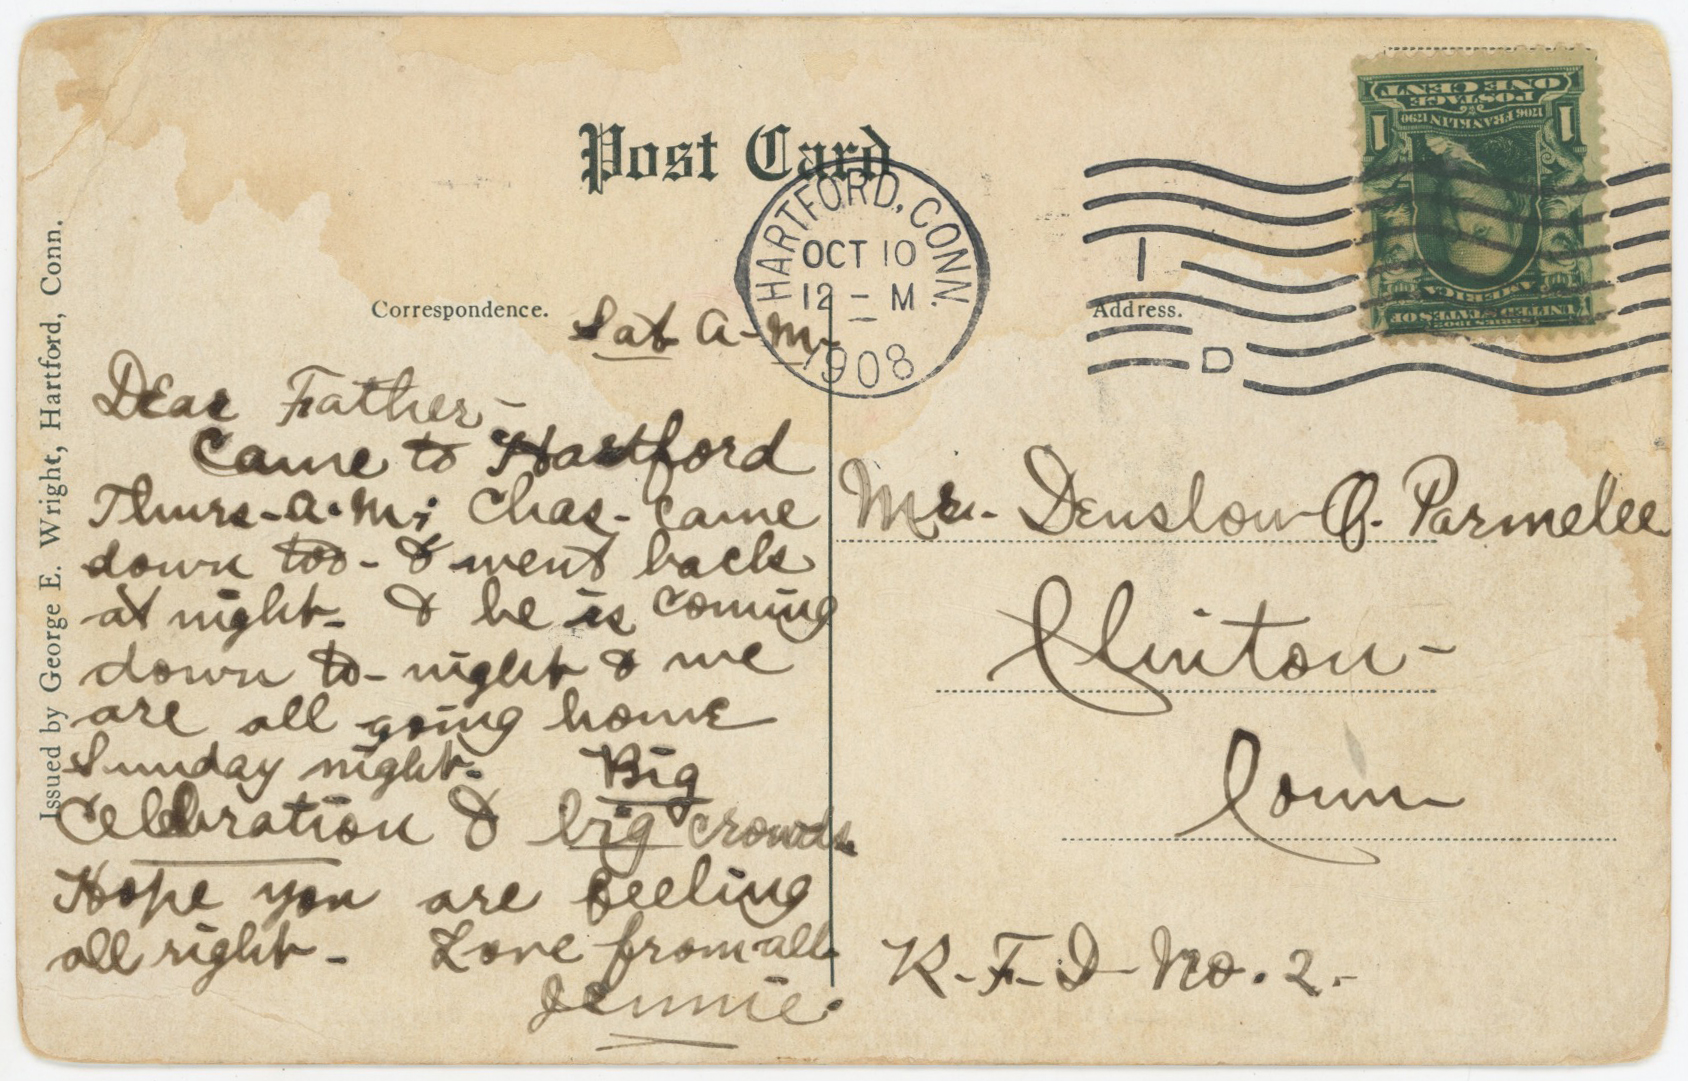 Post Card
HARTFORD, CONN.
OCT 10
12 - M
1908
1
D
1 POSTAGE 1
ONE CENT
1706 FRANKLIN 1790
SERIES 1902
UNITED STATES OF
AMERICA
Issued by George E. Wright, Hartford, Conn.
Correspondence.
Address.
Sat A-M-
Dear Father-
Came to Hartford
Thurs-a.m; Chas- came
down too- & went back
at night- & he is coming
down to-night & we
are all going home
Sunday night- Big
Celebration & big crowds
Hope you are feeling
all right- Love from all-
Jennie.
Mr. Denslow O. Parmelee
Clinton-
Conn
R-F-D- No. 2.-